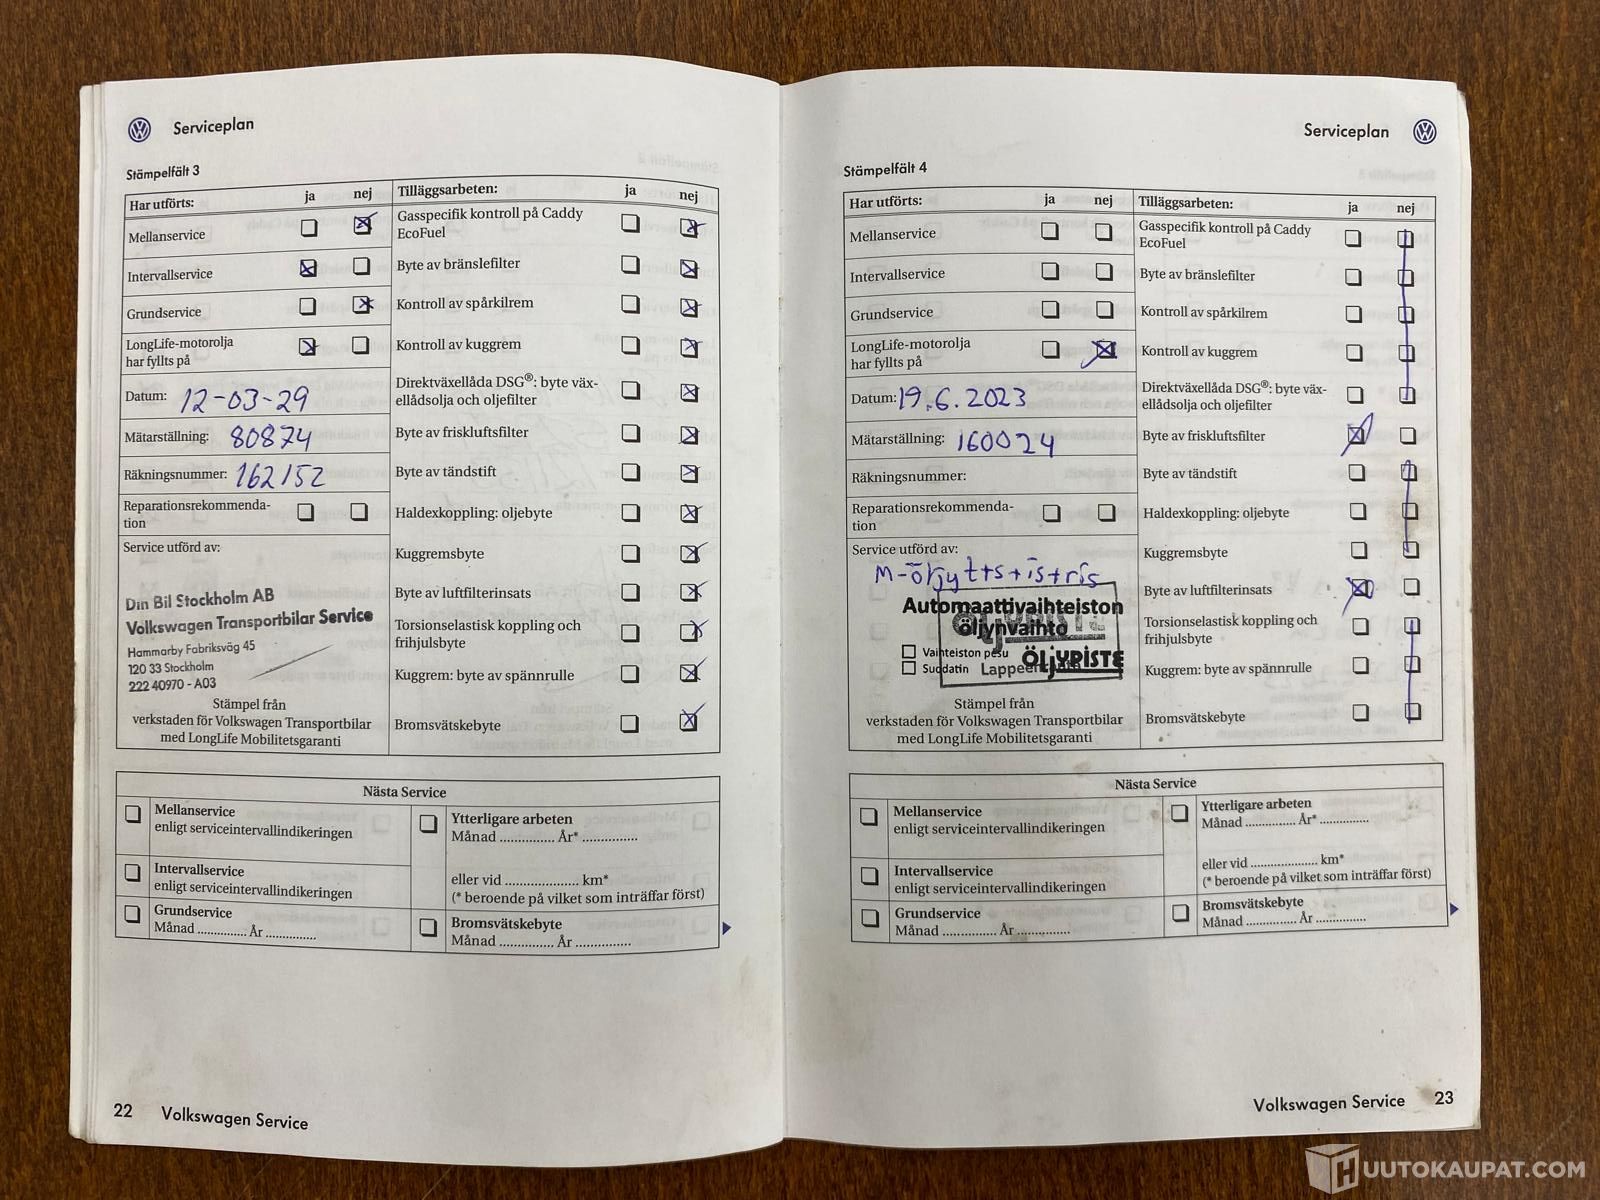 Serviceplan
Stämpelfält 3
Har utförts: ja nej
Mellanservice
Intervallservice
Grundservice
LongLife-motorolja
har fyllts på
Datum: 12-03-29
Mätarställning: 80874
Räkningsnummer: 162152
Reparationsrekommenda-
tion
Service utförd av:
Din Bil Stockholm AB
Volkswagen Transportbilar Service
Hammarby Fabriksväg 45
120 33 Stockholm
222 40970 - A03
Stämpel från
verkstaden för Volkswagen Transportbilar
med LongLife Mobilitetsgaranti
Tilläggsarbeten: ja nej
Gasspecifik kontroll på Caddy
EcoFuel
Byte av bränslefilter
Kontroll av spårkilrem
Kontroll av kuggrem
Direktväxellåda DSG®: byte väx-
ellådsolja och oljefilter
Byte av friskluftsfilter
Byte av tändstift
Haldexkoppling: oljebyte
Kuggremsbyte
Byte av luftfilterinsats
Torsionselastisk koppling och
frihjulsbyte
Kuggrem: byte av spännrulle
Bromsvätskebyte
Nästa Service
Mellanservice
enligt serviceintervallindikeringen
Intervallservice
enligt serviceintervallindikeringen
Grundservice
Månad .............. År ..............
Ytterligare arbeten
Månad ............... År* ...............
eller vid .................... km*
(* beroende på vilket som inträffar först)
Bromsvätskebyte
Månad ............... År ...............
22 Volkswagen Service
Serviceplan
Stämpelfält 4
Har utförts: ja nej
Mellanservice
Intervallservice
Grundservice
LongLife-motorolja
har fyllts på
Datum: 19.6.2023
Mätarställning: 160024
Räkningsnummer:
Reparationsrekommenda-
tion
Service utförd av:
M-öljyt+s+is+ris
Automaattivaihteiston
öljynvaihto
Vaihteiston pesu
Suodatin
ÖLJYPISTE
Stämpel från
verkstaden för Volkswagen Transportbilar
med LongLife Mobilitetsgaranti
Tilläggsarbeten: ja nej
Gasspecifik kontroll på Caddy
EcoFuel
Byte av bränslefilter
Kontroll av spårkilrem
Kontroll av kuggrem
Direktväxellåda DSG®: byte väx-
ellådsolja och oljefilter
Byte av friskluftsfilter
Byte av tändstift
Haldexkoppling: oljebyte
Kuggremsbyte
Byte av luftfilterinsats
Torsionselastisk koppling och
frihjulsbyte
Kuggrem: byte av spännrulle
Bromsvätskebyte
Nästa Service
Mellanservice
enligt serviceintervallindikeringen
Intervallservice
enligt serviceintervallindikeringen
Grundservice
Månad ............... År ...............
Ytterligare arbeten
Månad .............. År* ..............
eller vid .................... km*
(* beroende på vilket som inträffar först)
Bromsvätskebyte
Månad .............. År ..............
Volkswagen Service 23
HUUTOKAUPAT.COM